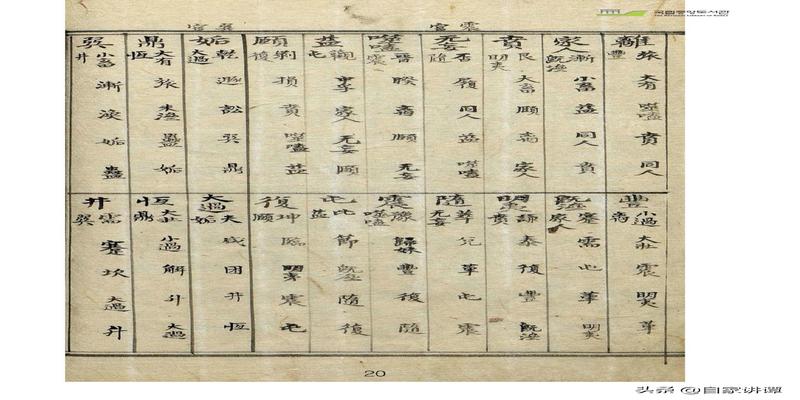 국립중앙도서관
THE NATIONAL LIBRARY OF KOREA
震宮
巽宮
離 旅 大有 噬嗑 賁 同人 豐
家人 漸 小畜 益 同人 賁 既濟
賁 艮 大畜 頤 离 家人 明夷
无妄 否 履 同人 益 噬嗑 隨
噬嗑 晉 睽 离 頤 无妄 震
益 觀 中孚 家人 无妄 頤 屯
頤 剝 損 賁 噬嗑 益 復
姤 乾 遯 訟 巽 鼎 大過
鼎 大有 旅 未濟 蠱 姤 恆
巽 小畜 漸 渙 姤 蠱 井
豐 小過 大壯 震 明夷 革 离
既濟 蹇 需 屯 革 明夷 家人
明夷 謙 泰 復 豐 既濟 賁
隨 萃 兌 革 屯 震 无妄
震 豫 歸妹 豐 復 隨 噬嗑
屯 比 節 既濟 隨 復 益
復 坤 臨 明夷 震 屯 頤
大過 夬 咸 困 井 恆 姤
恆 大壯 小過 解 升 大過 鼎
井 需 蹇 坎 大過 升 巽
20
头条 @自家讲谭